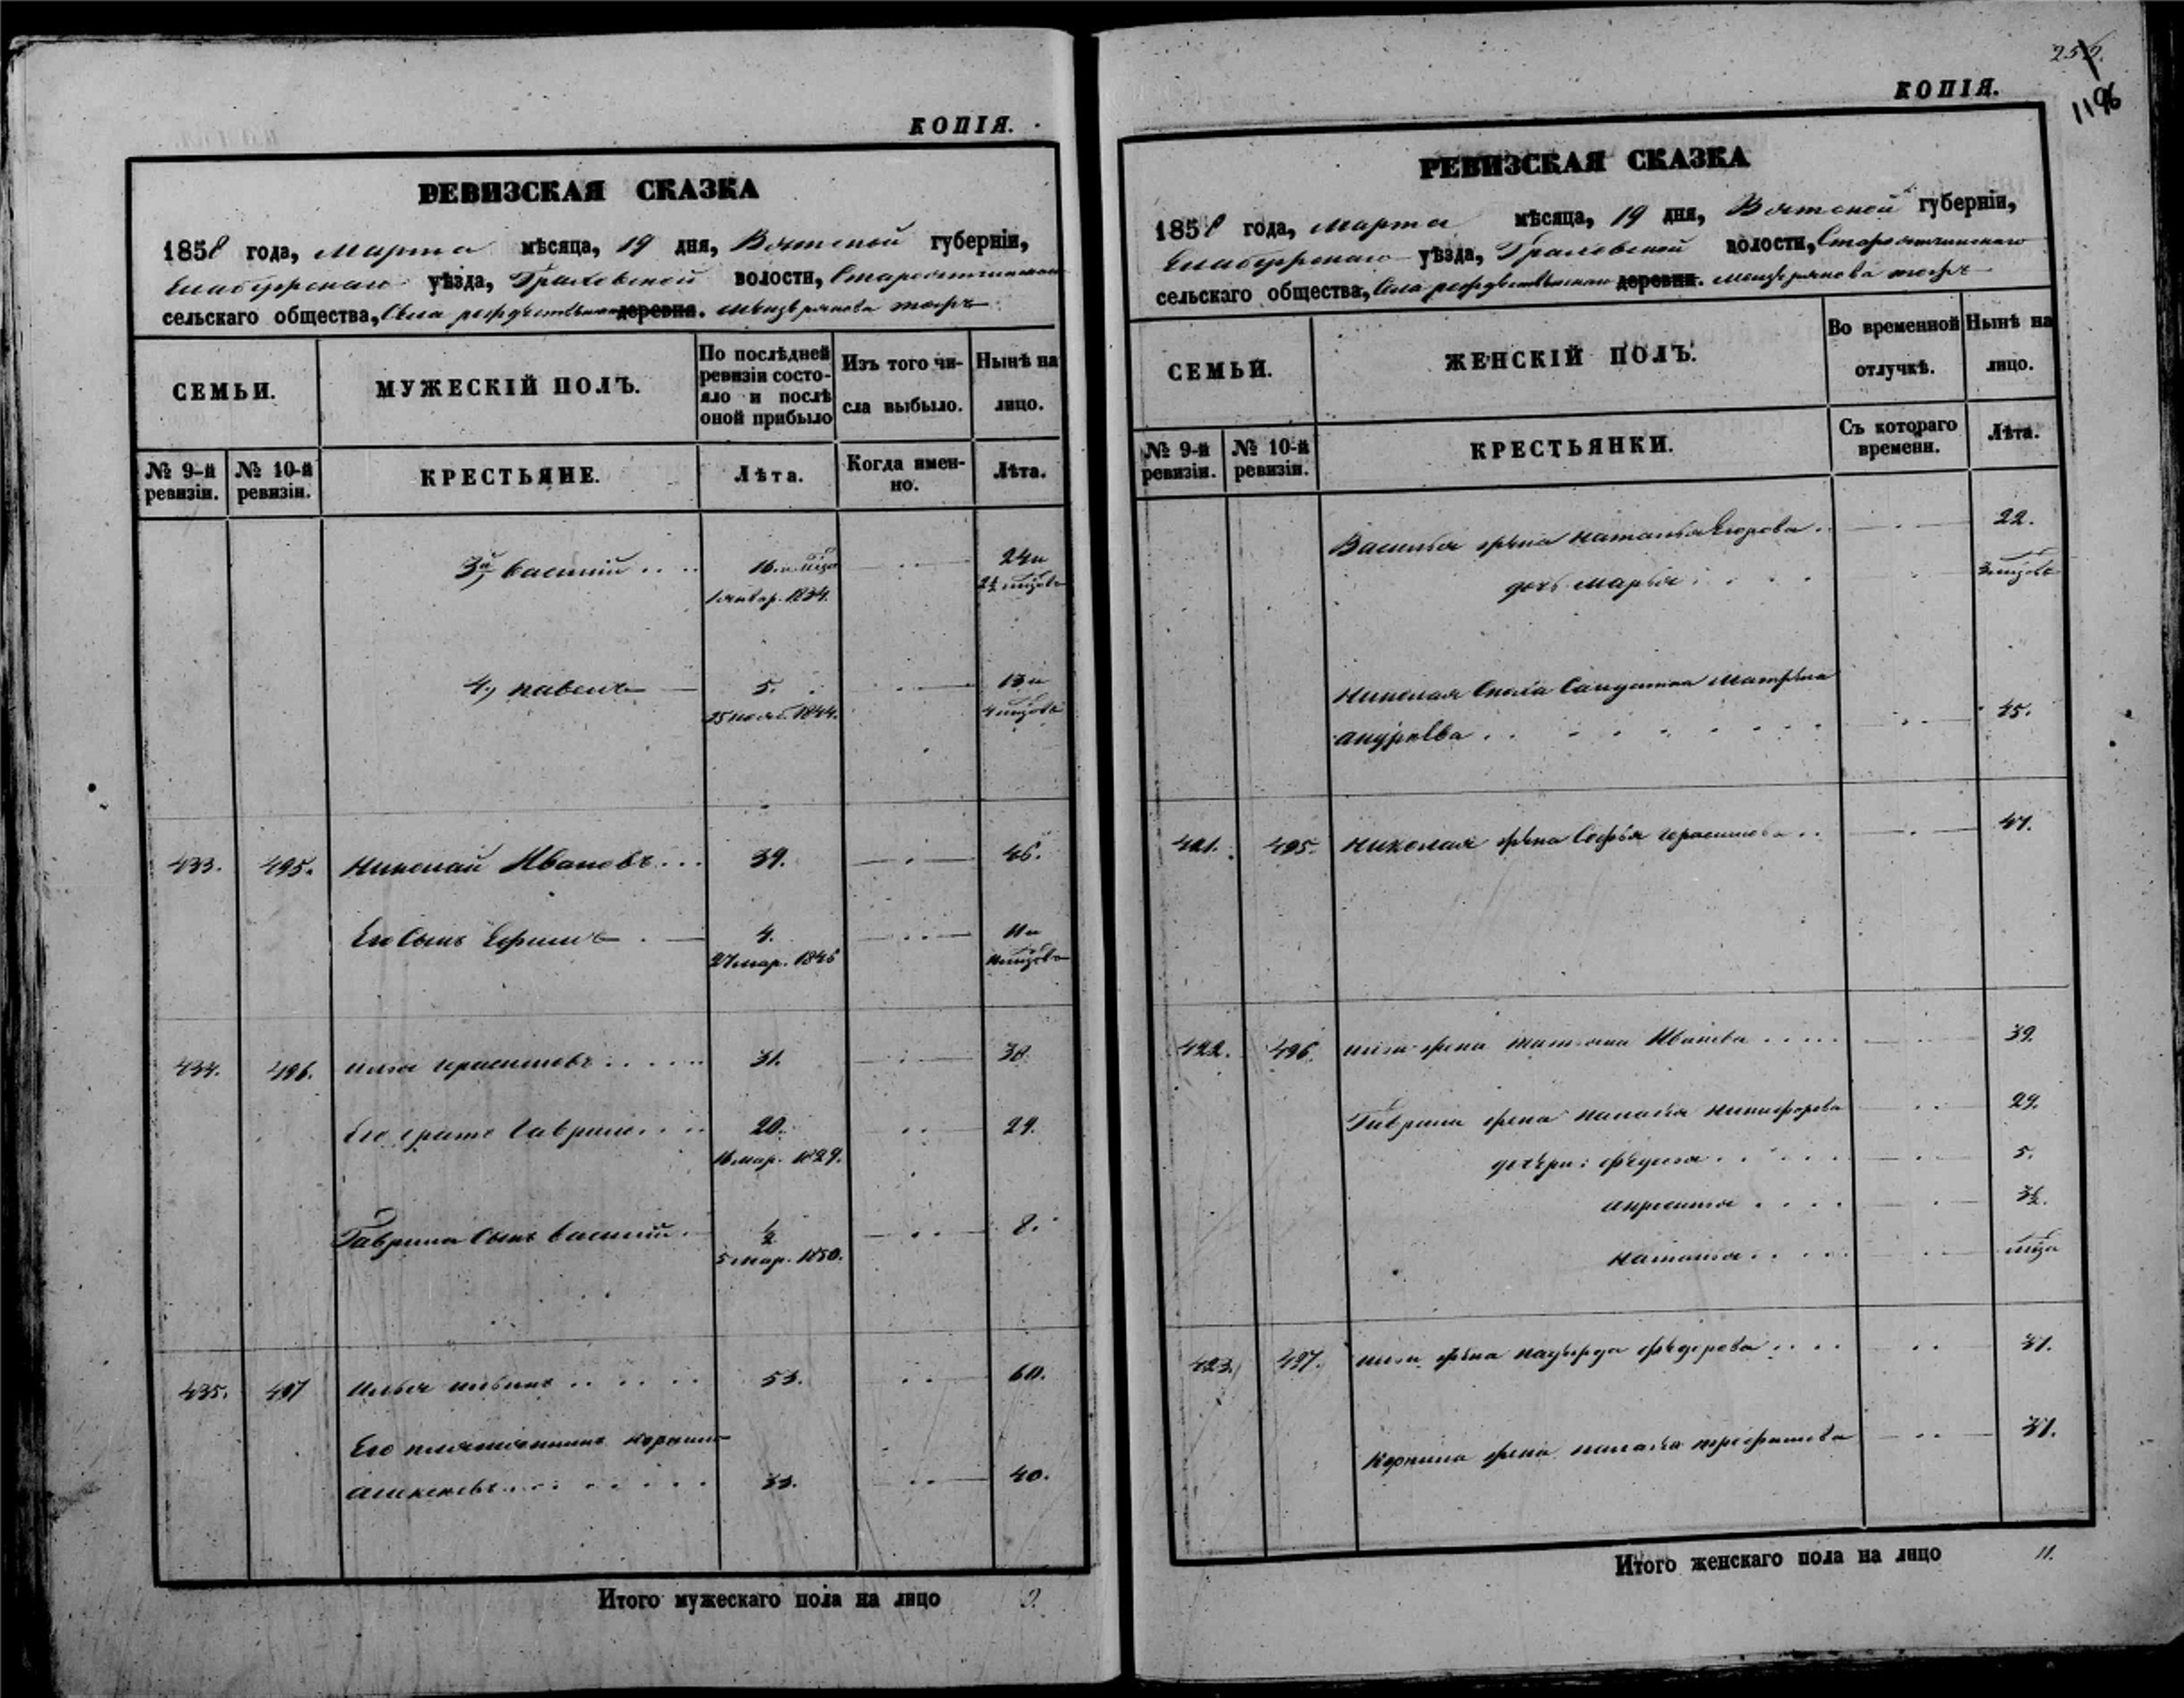 КОПІЯ.
РЕВИЗСКАЯ СКАЗКА
1858 года, марта мѣсяца, 19 дня, Вятской губерніи,
Елабужскаго уѣзда, Граховской волости,
сельскаго общества, Села деревни.
СЕМЬИ.
МУЖЕСКІЙ ПОЛЪ.
По послѣдней ревизіи состо-
яло и послѣ
оной прибыло
Изъ того чи-
сла выбыло.
Нынѣ на
лицо.
№ 9-й ревизіи.
№ 10-й ревизіи.
КРЕСТЬЯНЕ.
Лѣта.
Когда имен-
но.
Лѣта.
3й Василій 24 и
1 январ. 1834.
4, Павелъ 5. 13 и
25 нояб. 1844.
433. 495. Николай Ивановъ 39. 46.
Его сынъ Ефимъ 4. 11 и
27 мар. 1846
434. 496. Герасимовъ 31. 38.
Его братъ Гаврило 20. 29.
16 мар. 1829.
Гаврила сынъ Василій ½ 8.
5 мар. 1850.
435. 497 Илья 53. 60.
Его племянникъ Корнило
33. 40.
Итого мужескаго пола на лицо 9.
1196
КОПІЯ.
РЕВИЗСКАЯ СКАЗКА
1858 года, марта мѣсяца, 19 дня, Вятской губерніи,
Елабужскаго уѣзда, Граховской волости,
сельскаго общества, Села деревни.
СЕМЬИ.
ЖЕНСКІЙ ПОЛЪ.
Во временной
отлучкѣ.
Нынѣ на
лицо.
№ 9-й ревизіи.
№ 10-й ревизіи.
КРЕСТЬЯНКИ.
Съ котораго
времени.
Лѣта.
Василья жена Наталья Егорова 22.
дочь Марья
Николая Матрена
Андреева 45.
421. 495. Николая жена Софья Герасимова 47.
422. 496. жена Татьяна Иванова 39.
Гаврила жена Никифорова 29.
дочери: Федосья 5.
3½.
Наталья
423. 497. жена Надежда Федорова 31.
Корнила жена Трефилова 31.
Итого женскаго пола на лицо 11.